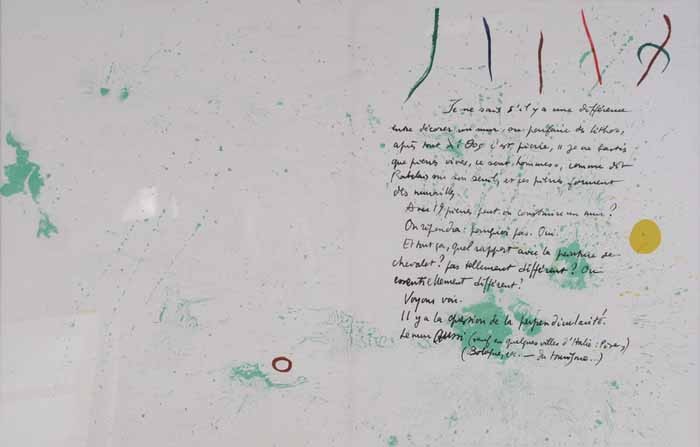 Je ne sais s'il y a une différence
entre décorer un mur, ou peinture de lithos,
après tout c'est pierre, « je ne bastis
que pierres vives, ce sont hommes », comme dit
Rabelais sur son seuil, et ces pierres forment
des murailles.
Avec 19 pierres peut on construire un mur?
On répondra: pourquoi pas. Oui.
Et tout ça, quel rapport avec la peinture de
chevalet? pas tellement différent? Ou
essentiellement différent?
Voyons voir.
Il y a la question de la perpendicularité.
Le mur aussi (sauf en quelques villes d'Italie: Pise,)
(Bologne, etc. —